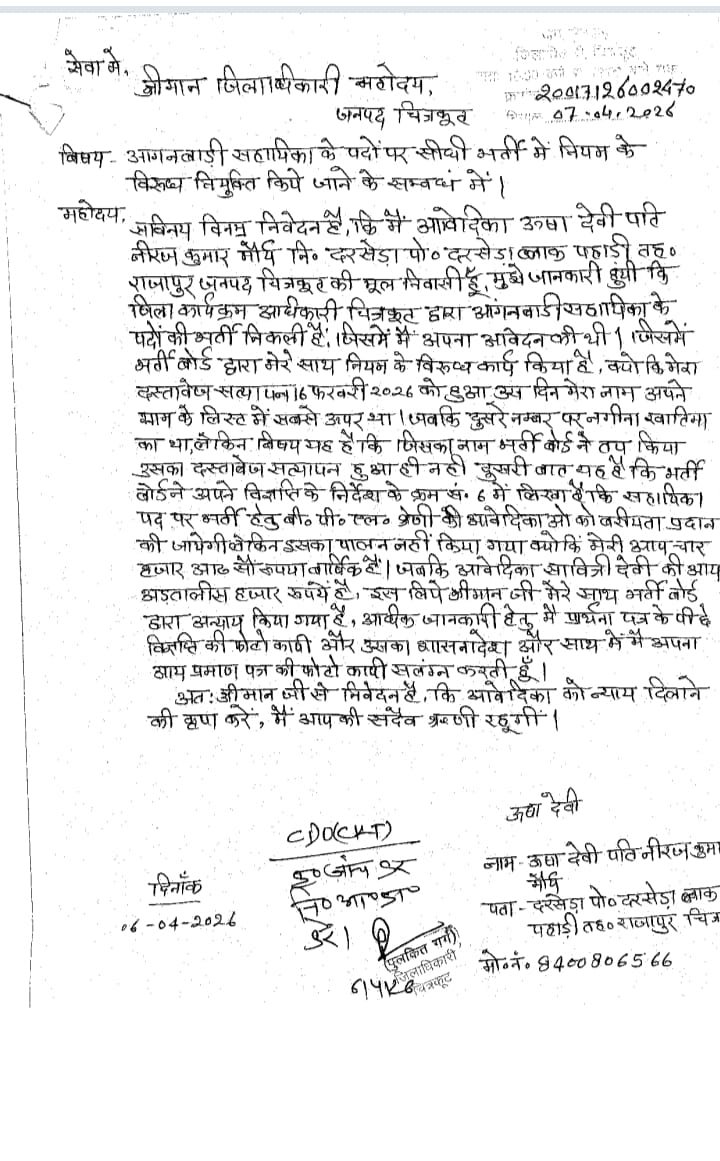 सेवा मे,
श्रीमान जिलाधिकारी महोदय,
जनपद चित्रकूट
20017126002470
07-04-2026
विषय - आगनबाड़ी सहायिका के पदों पर सीधी भर्ती में नियम के
विरुध नियुक्ति किये जाने के सम्बधं में।
महोदय,
सविनय विनम्र निवेदन है, कि मैं आवेदिका ऊषा देवी पति
नीरज कुमार मौर्य नि० दरसेड़ा पो० दरसेड़ा ब्लाक पहाडी तह०
राजापुर जनपद चित्रकूट की मूल निवासी हूँ, मुझे जानकारी हुयी कि
जिला कार्यक्रम अधिकारी चित्रकूट द्वारा आंगनबाडी सहायिका के
पदों की भर्ती निकली है, जिसमें मै अपना आवेदन की थी। जिसमें
भर्ती बोर्ड द्वारा मेरे साथ नियम के विरुध्ध कार्य किया है, क्यो कि मेरा
दस्तावेज सत्यापन 16 फरवरी 2026 को हुआ उस दिन मेरा नाम अपने
भाग के लिस्ट में सबसे ऊपर था। जबकि दुसरे नम्बर पर नगीना खातिमा
का था, लेकिन बिषय यह है कि जिसका नाम भर्ती बोर्ड ने तय किया
उसका दस्तावेज सत्यापन हुआ ही नही दूसरी बात यह है कि भर्ती
बोर्ड ने अपने विज्ञप्ति के निर्देश के क्रम सं. 6 में लिखा है कि सहायिका
पद पर भर्ती हेतु बी० पी० एल० श्रेणी की आवेदिकाओ को वरीयता प्रदान
की जायेगी लेकिन इसका पालन नहीं किया गया क्योकि मेरी आय चार
हजार आठ सौ रुपया वार्षिक है। जबकि आवेदिका सावित्री देवी की आय
अड़तालीस हजार रुपयें है, इस लिये श्रीमान जी मेरे साथ भर्ती बोर्ड
द्वारा अन्याय किया गया है, अधिक जानकारी हेतु मै प्रार्थना पत्र के पीछे
विज्ञप्ति की फोटो कापी और उसका शासनादेश और साथ में मै अपना
आय प्रमाण पत्र की फोटो कापी सलंग्न करती हूँ।
अत: श्रीमान जी से निवेदन है, कि आवेदिका को न्याय दिलाने
की कृपा करें, मैं आपकी सदैव ऋणी रहूगी।
ऊषा देवी
CDO(CKT)
नाम - ऊषा देवी पति नीरज कुमा
मौर्य
पता - दरसेड़ा पो० दरसेड़ा ब्लाक
पहाड़ी तह० राजापुर चित्र
मो०नं० 8400806566
दिनाँक
06-04-2026
(पुलकित गर्ग)
जिलाधिकारी
चित्रकूट